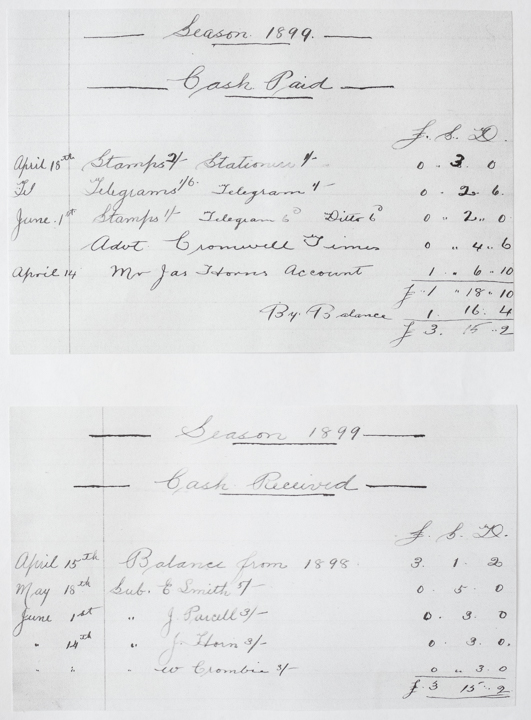 Season 1899.
Cash Paid
£. S. D.
April 18th Stamps 2/- Stationer 1/- 0 . 3 . 0
Til Telegrams 1/6 Telegram 1/- 0 . 2 . 6.
June. 1st Stamps 1/- Telegram 6D Ditto 6D 0 " 2 .. 0
Advt. Cromwell Times 0 " 4 .. 6
April 14 Mr Jas Horns Account 1 . " 6 . 10
£ . 1 " 18 .. 10
By. Balance 1. 16. 4
£ 3. 15 .. 2
Season 1899
Cash Received
£. S. D.
April 15th Balance from 1898. 3. 1 . 2
May 18th Sub. E Smith 5/- 0 . 5 . 0
June 1st " J. Purcell 3/- 0. 3. 0
" 14th " J. Horn 3/- 0 . 3. 0.
" " " W Crombie 3/- 0 " 3. 0
£. 3 15 .. 2